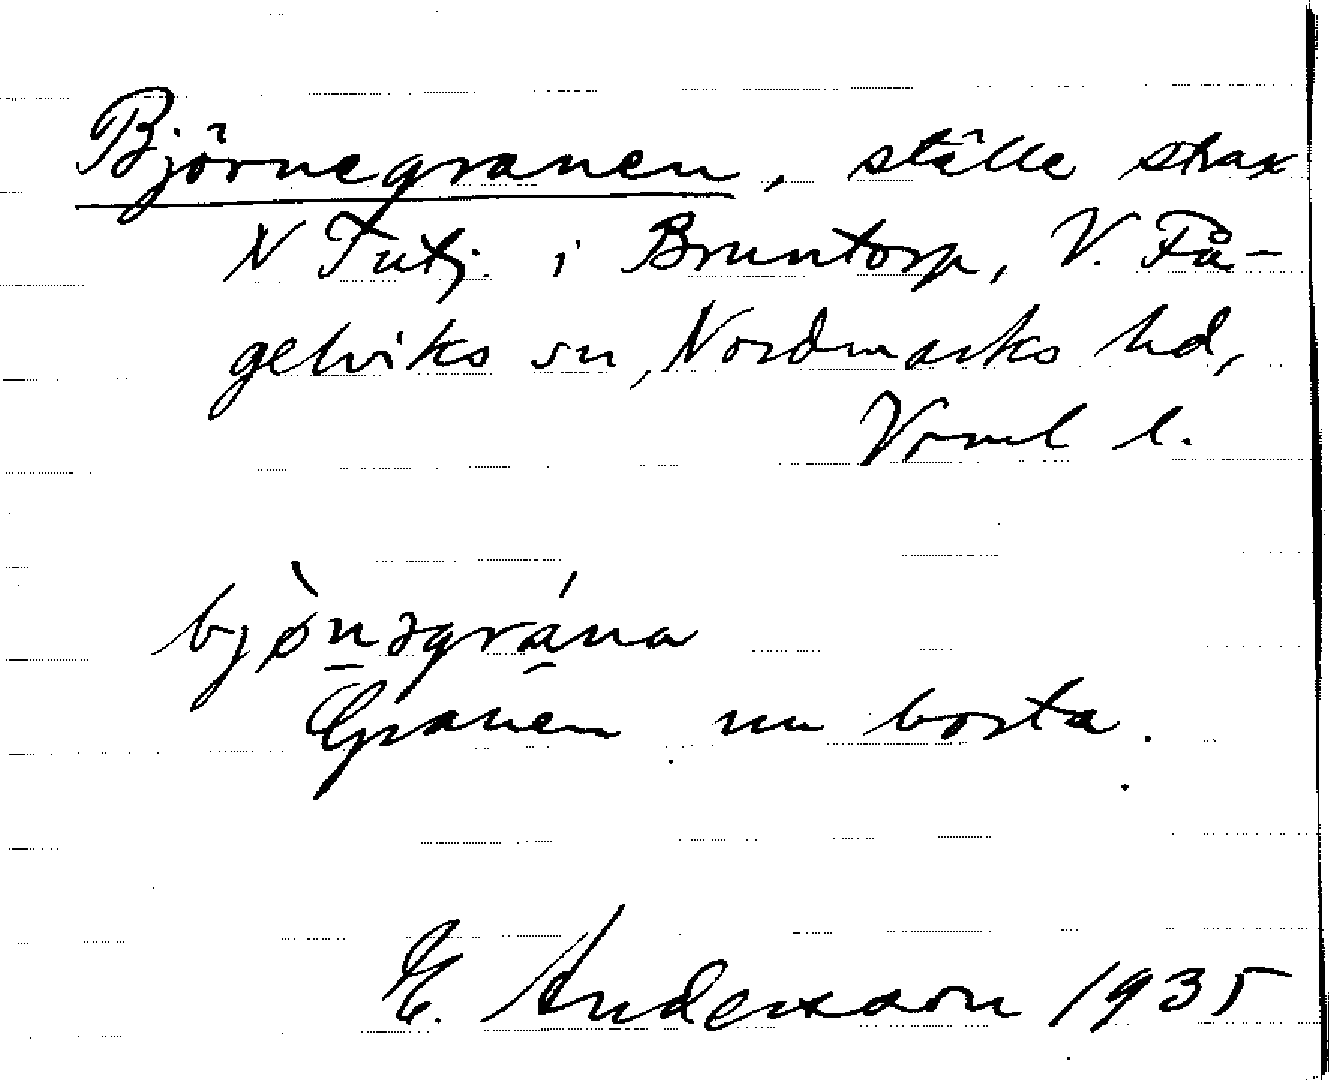 Björnegranen, ställe strax
N Tutj. i Bruntorp, V. Få-
gelviks sn, Nordmarks hd,
Verml l.
bjø̀n̲əgrána
Granen nu borta.
E. Andersson 1935